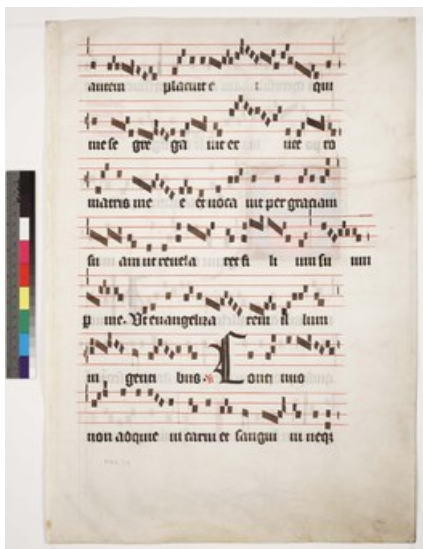 autem placuit e i qui
me se gre ga uit ex ute ro
matris me e et uoca uit per graciam
su am ut reuela ret fi li um su um
p me. Ut euangeliza rem il lum
in genti bus. Conti nuo
non adquie ui carni et sangui ni neqz